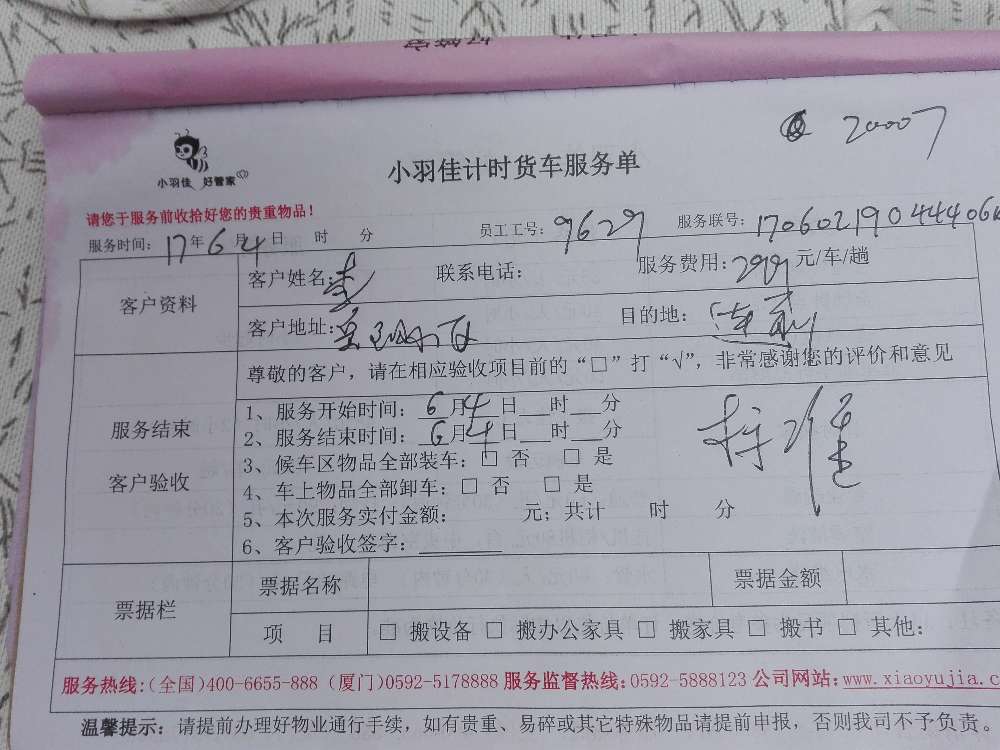 20007
小羽佳 好管家
小羽佳计时货车服务单
请您于服务前收拾好您的贵重物品！
服务时间：17年6月4日 时 分 员工工号：9629 服务联号：1706021904440
客户资料 客户姓名： 联系电话： 服务费用：299元/车/趟
客户地址： 目的地：
尊敬的客户，请在相应验收项目前的“□”打“√”，非常感谢您的评价和意见
服务结束
客户验收
1、服务开始时间：6月4日___时___分
2、服务结束时间：6月4日___时___分
3、候车区物品全部装车：□ 否 □ 是
4、车上物品全部卸车：□ 否 □ 是
5、本次服务实付金额： 元；共计 时 分
6、客户验收签字：________
票据栏 票据名称 票据金额
项 目 □ 搬设备 □ 搬办公家具 □ 搬家具 □ 搬书 □ 其他：
服务热线：（全国）400-6655-888（厦门）0592-5178888 服务监督热线：0592-5888123 公司网站：www.xiaoyujia.c
温馨提示：请提前办理好物业通行手续，如有贵重、易碎或其它特殊物品请提前申报，否则我司不予负责。